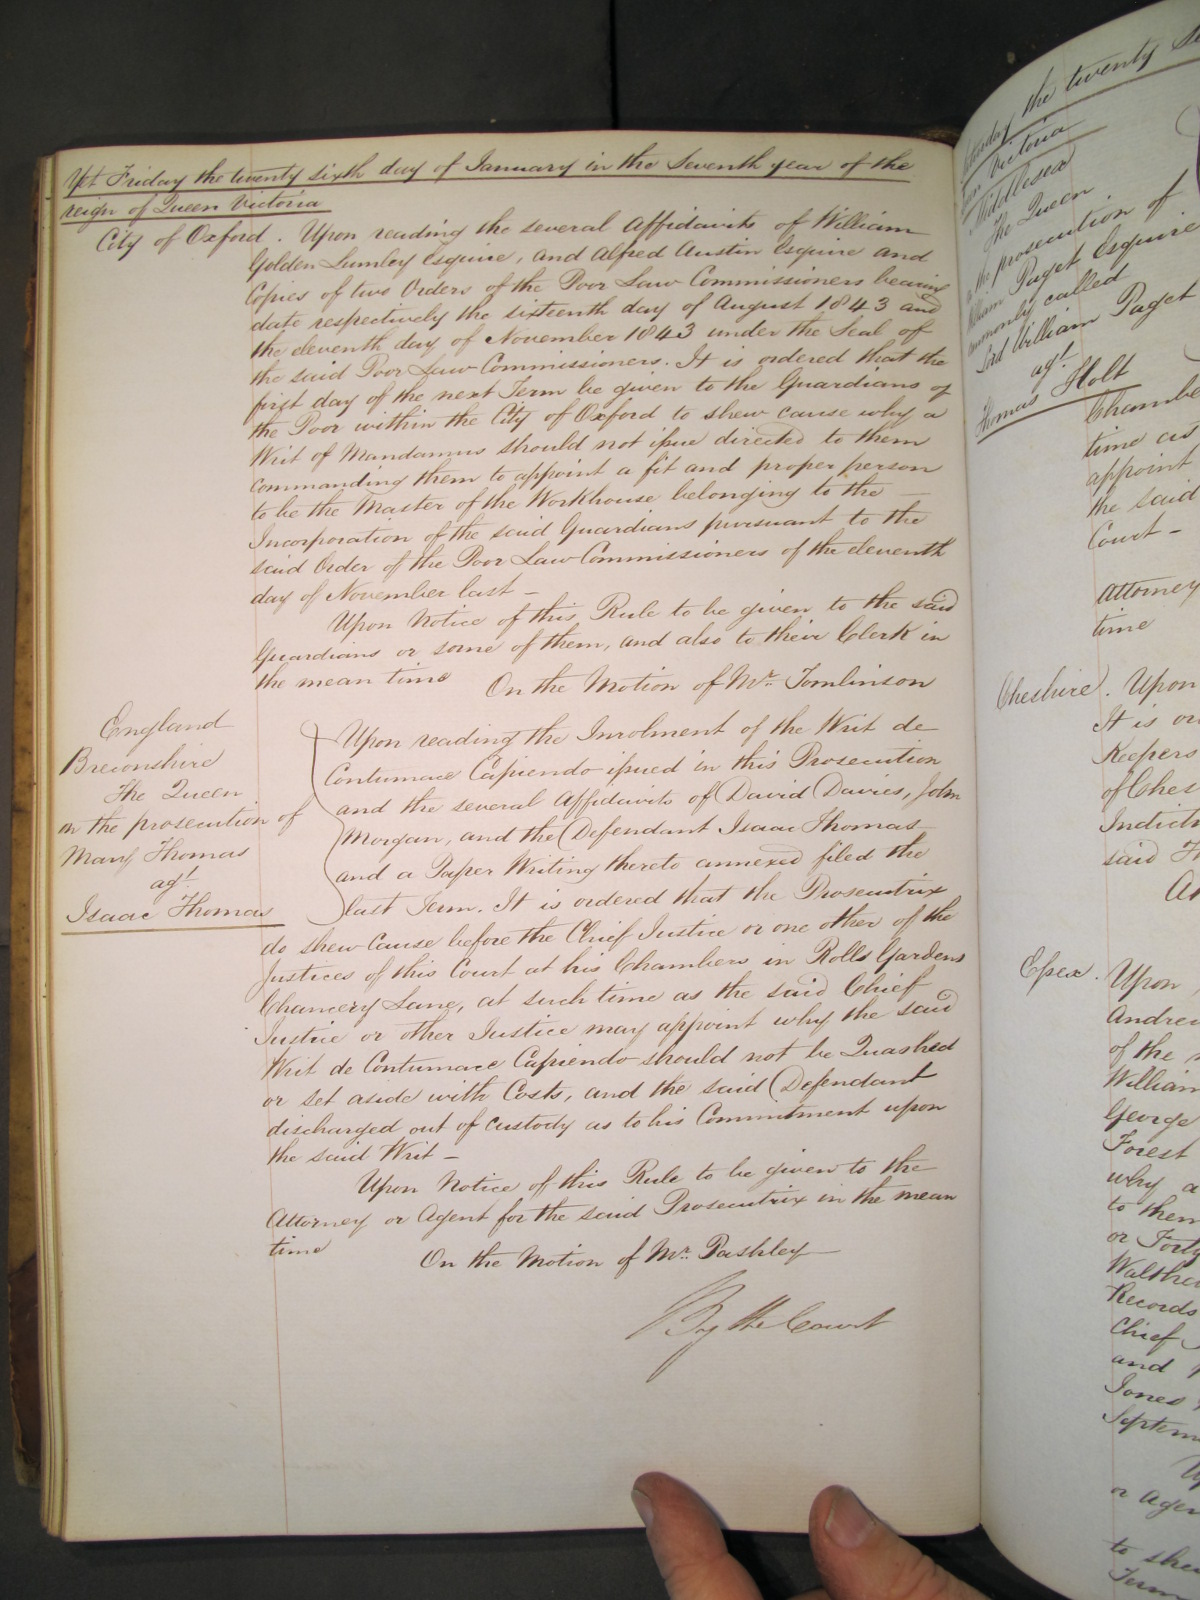 Yet Friday the twenty sixth day of January in the Seventh year of the
reign of Queen Victoria
City of Oxford. Upon reading the several Affidavits of William
Golden Lumley Esquire, and Alfred Austin Esquire and
Copies of two Orders of the Poor Law Commissioners bearing
date respectively the sixteenth day of August 1843 and
the eleventh day of November 1843 under the Seal of
the said Poor Law Commissioners. It is ordered that the
first day of the next Term be given to the Guardians of
the Poor within the City of Oxford to shew cause why a
Writ of Mandamus should not issue directed to them
commanding them to appoint a fit and proper person
to be the Master of the Workhouse belonging to the
Incorporation of the said Guardians pursuant to the
said Order of the Poor Law Commissioners of the eleventh
day of November last –
Upon Notice of this Rule to be given to the said
Guardians or some of them, and also to their Clerk in
the mean time
On the Motion of Mr. Tomlinson
England
Breconshire
The Queen
on the prosecution of
Mary Thomas
agt.
Isaac Thomas
Upon reading the Inrolment of the Writ de
Contumace Capiendo issued in this Prosecution
and the several Affidavits of David Davies, John
Morgan, and the Defendant Isaac Thomas
and a Paper Writing thereto annexed filed the
last Term. It is ordered that the Prosecutrix
do shew cause before the Chief Justice or one other of the
Justices of this Court at his Chambers in Rolls Gardens
Chancery Lane, at such time as the said Chief
Justice or other Justice may appoint why the said
Writ de Contumace Capiendo should not be Quashed
or set aside with Costs, and the said Defendant
discharged out of custody as to his Commitment upon
the said Writ –
Upon Notice of this Rule to be given to the
Attorney or Agent for the said Prosecutrix in the mean
time
On the Motion of Mr. Pashley
By the Court
the twenty
Victoria
Middlesex
The Queen
prosecution of
Paget Esquire
commonly called
Lord William Paget
agt.
Thomas Holt
time as
appoint
the said
Court –
Attorney
time
Cheshire. Upon
It is or
Keepers
of Ches
Indictm
said
Essex. Upon
Andrew
of the
William
George
Forest
why a
to them
or Forty
Records
Chief
and
Jones
Septem
or Agen
to shew
Term